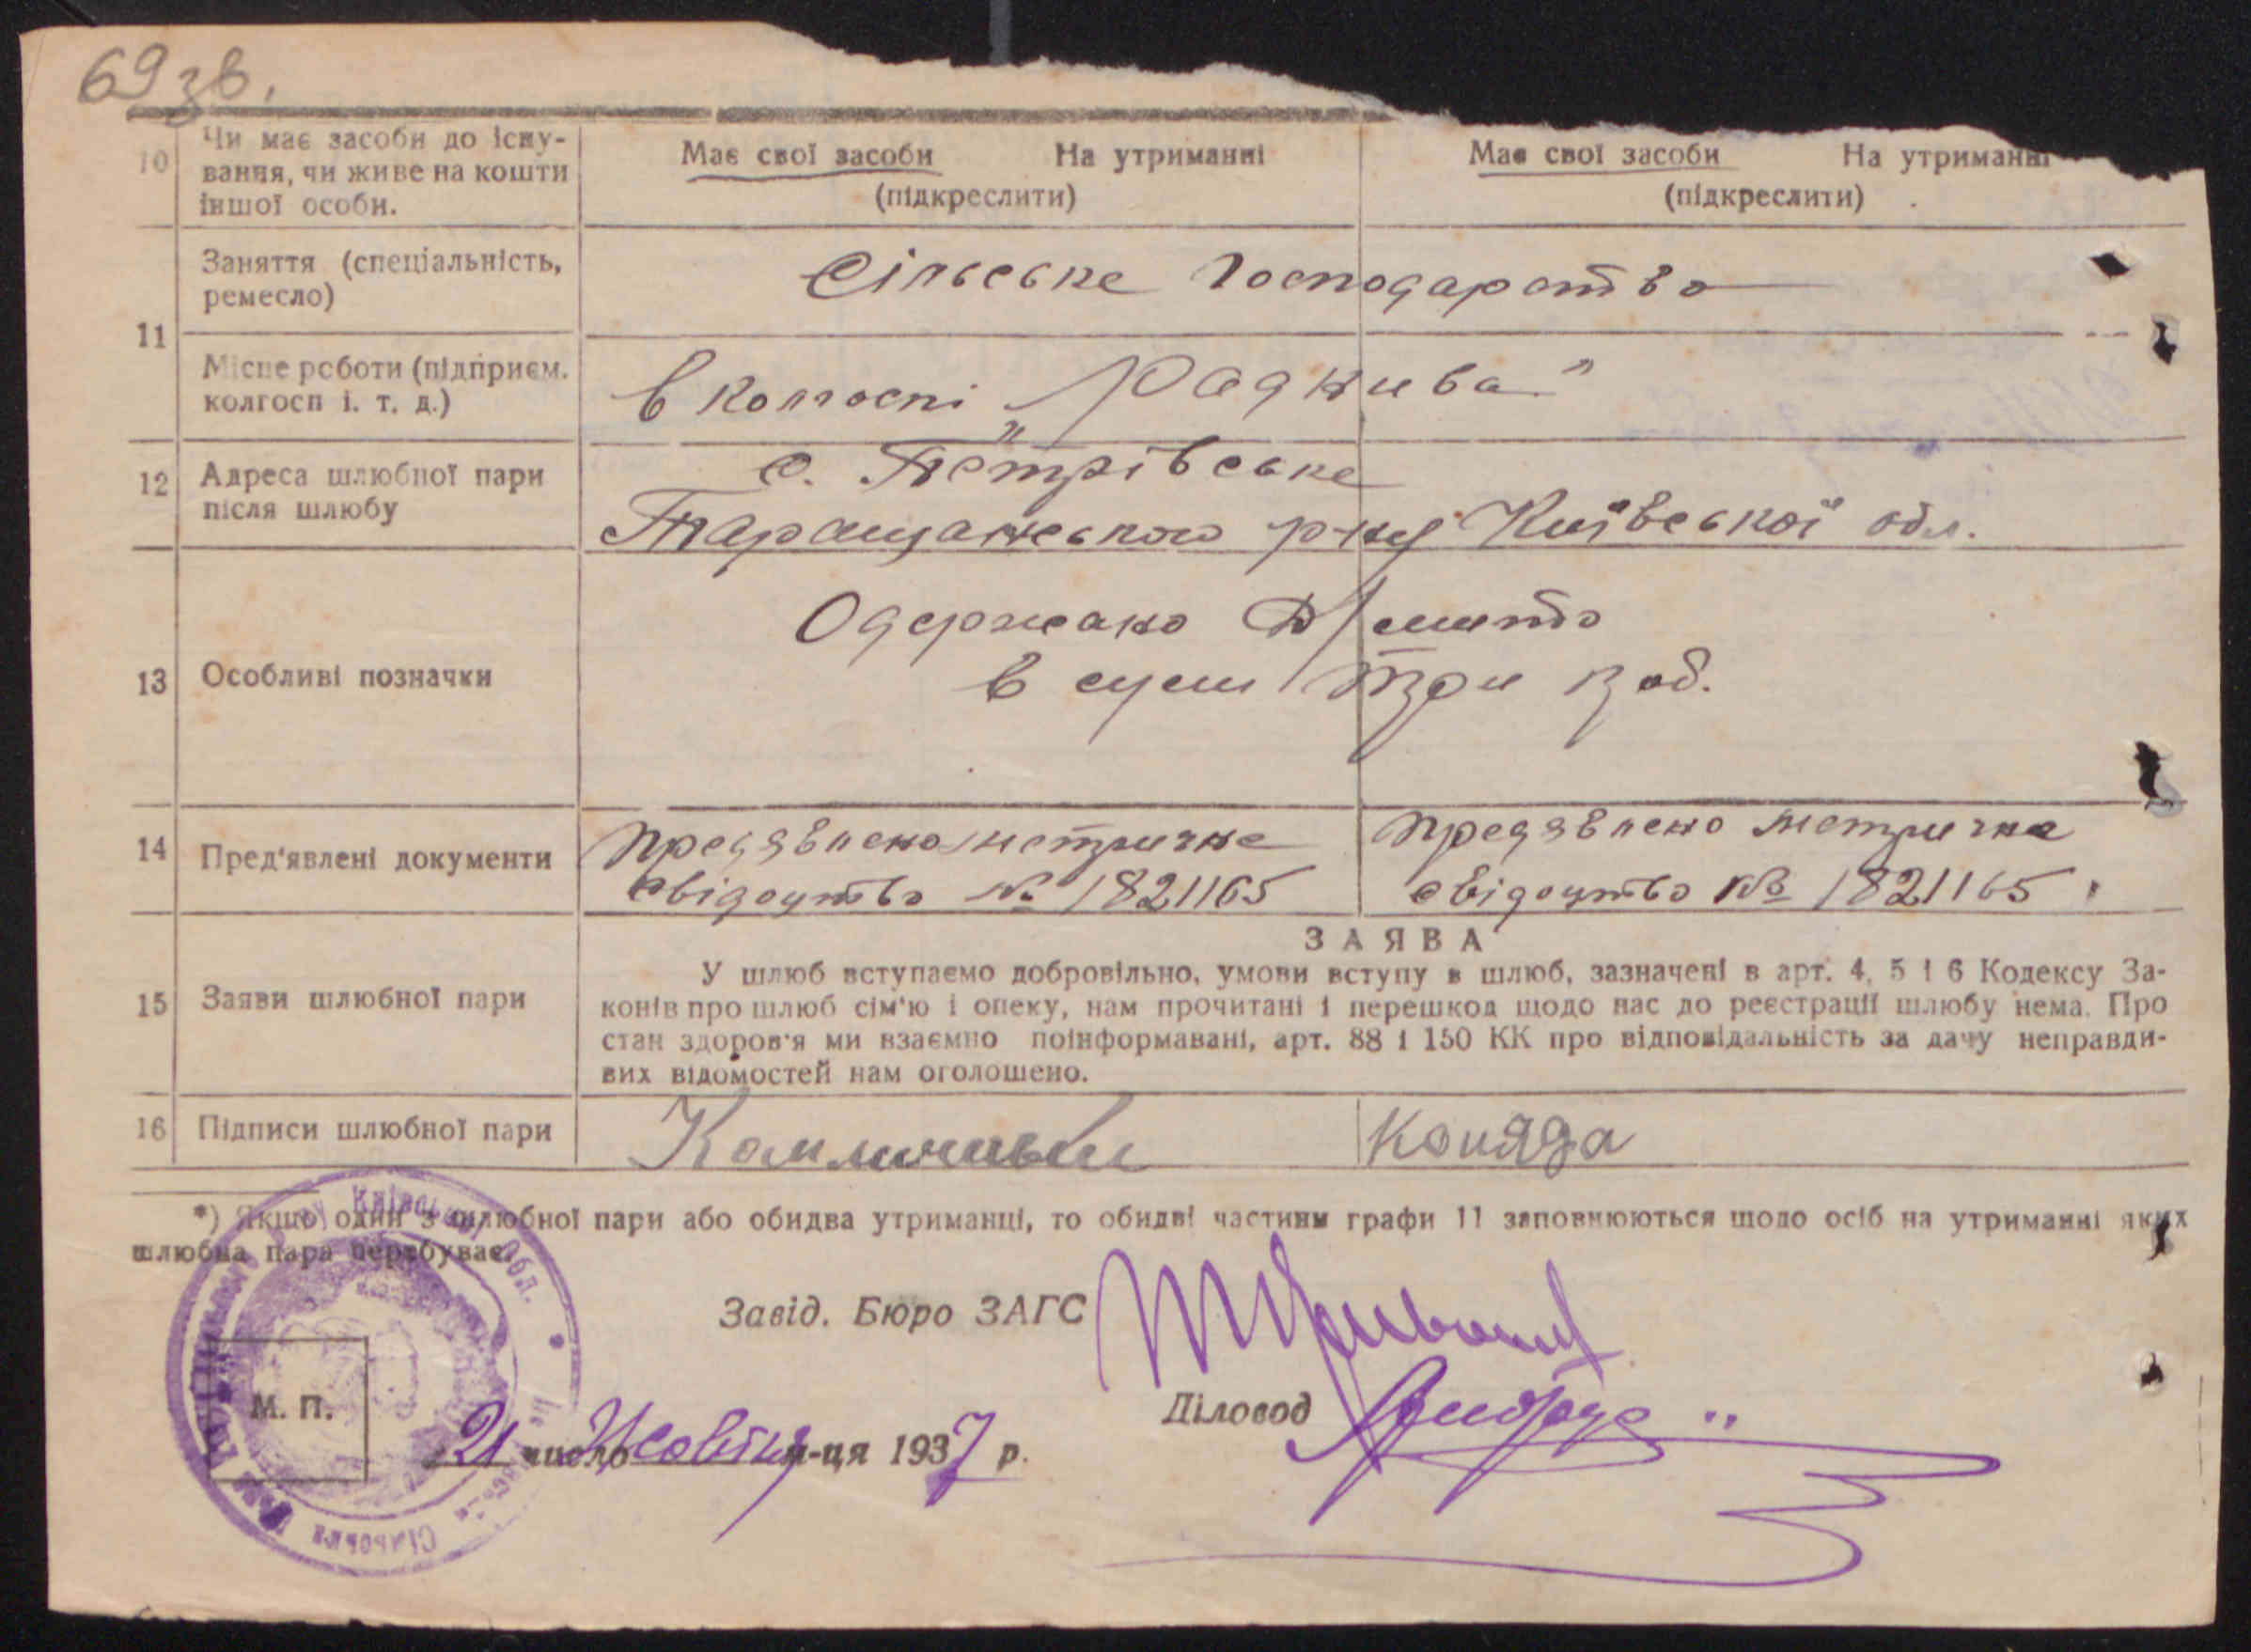 69 зв.
10 Чи має засоби до існу-
вання, чи живе на кошти
іншої особи.
Має свої засоби На утриманні
(підкреслити)
Має свої засоби На утриманні
(підкреслити)
11
Заняття (спеціальність,
ремесло)
Сільське Господарство
Місце роботи (підприєм.
колгосп і. т. д.)
в колгоспі „Раднива"
12 Адреса шлюбної пари
після шлюбу
с. Петрівське
Таращанського р-ну Київської обл.
13 Особливі позначки
Одержано
в сумі три
14 Пред'явлені документи
Предявлено метричне
свідоцтво № 1821165
Предявлено метричне
свідоцтво № 1821165
15 Заяви шлюбної пари
ЗАЯВА
У шлюб вступаємо добровільно, умови вступу в шлюб, зазначені в арт. 4, 5 і 6 Кодексу За-
конів про шлюб сім'ю і опеку, нам прочитані і перешкод щодо нас до реєстрації шлюбу нема. Про
стан здоров'я ми взаємно поінформавані, арт. 88 і 150 КК про відповідальність за дачу неправди-
вих відомостей нам оголошено.
16 Підписи шлюбної пари
*) Якщо один з шлюбної пари або обидва утриманці, то обидві частини графи 11 заповнюються щодо осіб на утриманні яких
шлюбна пара перебуває.
Київської Обл.
Завід. Бюро ЗАГС
М. П.
Діловод
21 число Жовтня м-ця 1937 р.
Сільська